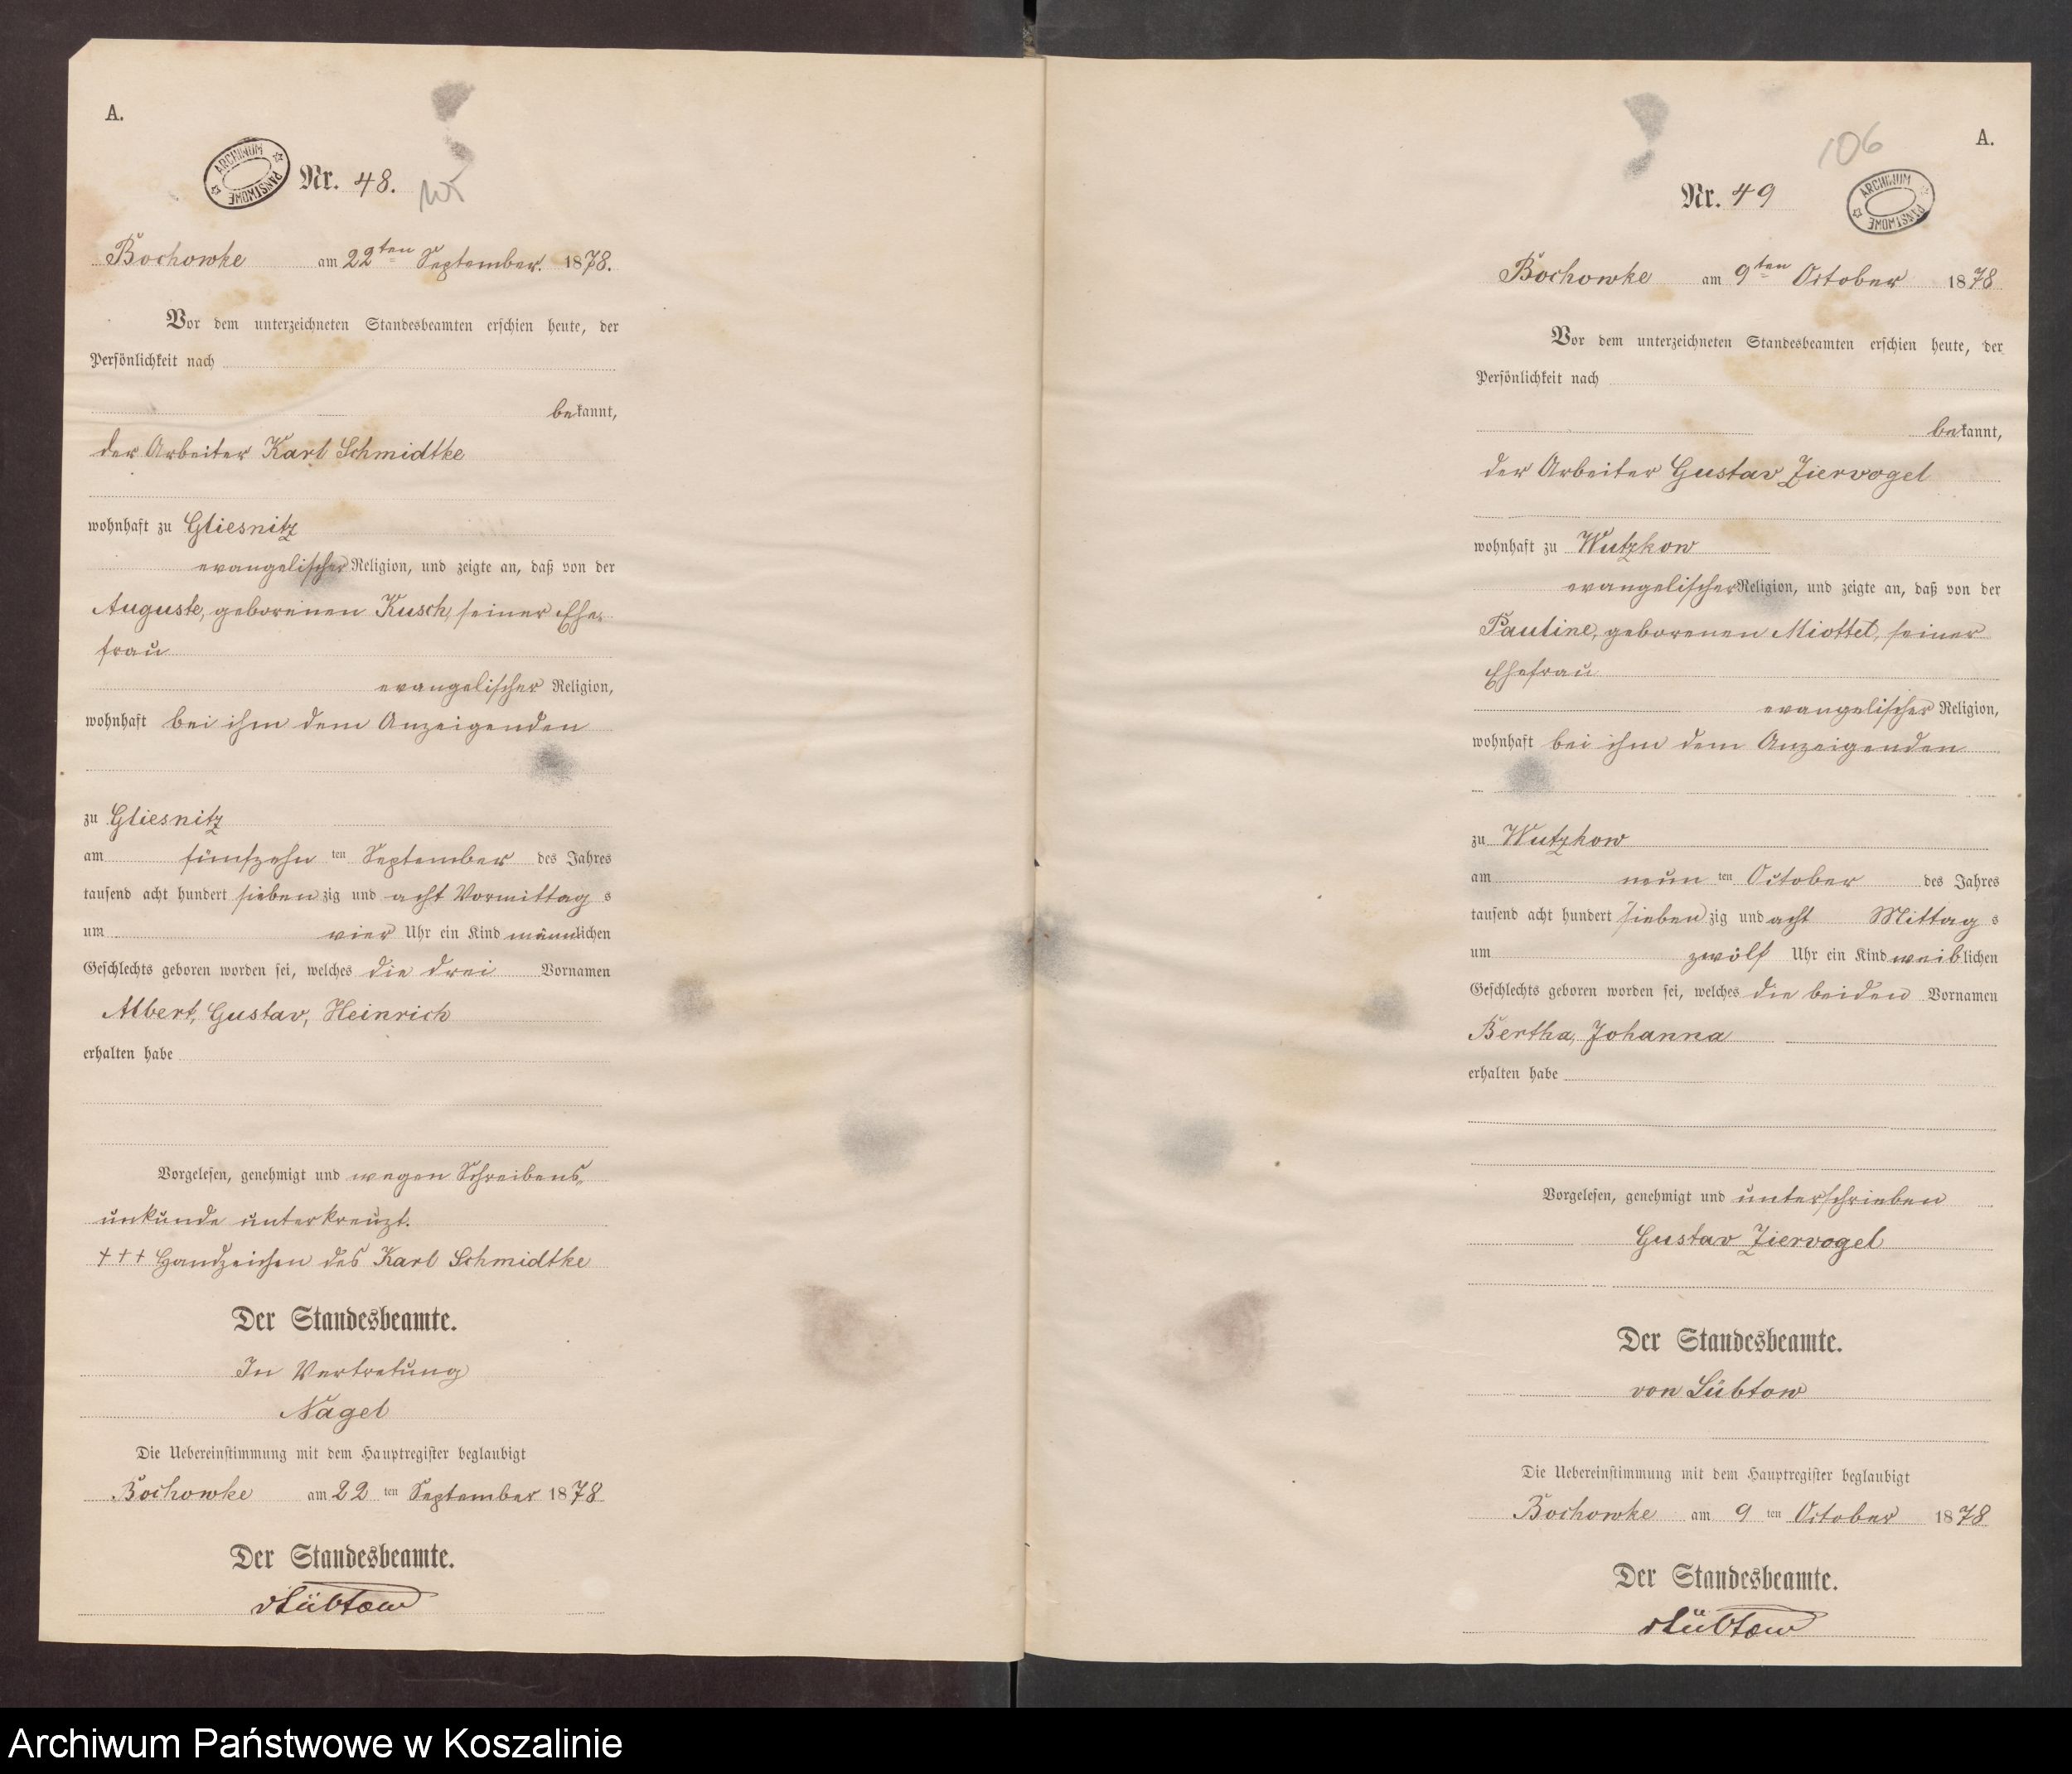 A.
ARCHIWUM PAŃSTWOWE
Nr. 48.
Bochowke am 22ten September. 1878.
Vor dem unterzeichneten Standesbeamten erschien heute, der
Persönlichkeit nach
bekannt,
der Arbeiter Karl Schmidtke
wohnhaft zu Gliesnitz
evangelischer Religion, und zeigte an, daß von der
Auguste, geborenen Kusch, seiner Ehe-
frau
evangelischer Religion,
wohnhaft bei ihm dem Anzeigenden
zu Gliesnitz
am fünfzehn ten September des Jahres
tausend acht hundert siebenzig und acht Vormittag s
um vier Uhr ein Kind männlichen
Geschlechts geboren worden sei, welches die drei Vornamen
Albert, Gustav, Heinrich
erhalten habe
Vorgelesen, genehmigt und wegen Schreibens-
unkunde unterkreuzt.
+++ Handzeichen des Karl Schmidtke
Der Standesbeamte.
In Vertretung
Nagel
Die Uebereinstimmung mit dem Hauptregister beglaubigt
Bochowke am 22 ten September 1878
Der Standesbeamte.
vLübtow
106
A.
Nr. 49
ARCHIWUM PAŃSTWOWE
Bochowke am 9ten October 1878
Vor dem unterzeichneten Standesbeamten erschien heute, der
Persönlichkeit nach
bekannt,
der Arbeiter Gustav Ziervogel
wohnhaft zu Wutzkow
evangelischer Religion, und zeigte an, daß von der
Pauline, geborenen Miottel, seiner
Ehefrau
evangelischer Religion,
wohnhaft bei ihm dem Anzeigenden
zu Wutzkow
am neun ten October des Jahres
tausend acht hundert siebenzig und acht Mittag s
um zwölf Uhr ein Kind weiblichen
Geschlechts geboren worden sei, welches die beiden Vornamen
Bertha, Johanna
erhalten habe
Vorgelesen, genehmigt und unterschrieben
Gustav Ziervogel
Der Standesbeamte.
von Lübtow
Die Uebereinstimmung mit dem Hauptregister beglaubigt
Bochowke am 9 ten October 1878
Der Standesbeamte.
vLübtow
Archiwum Państwowe w Koszalinie